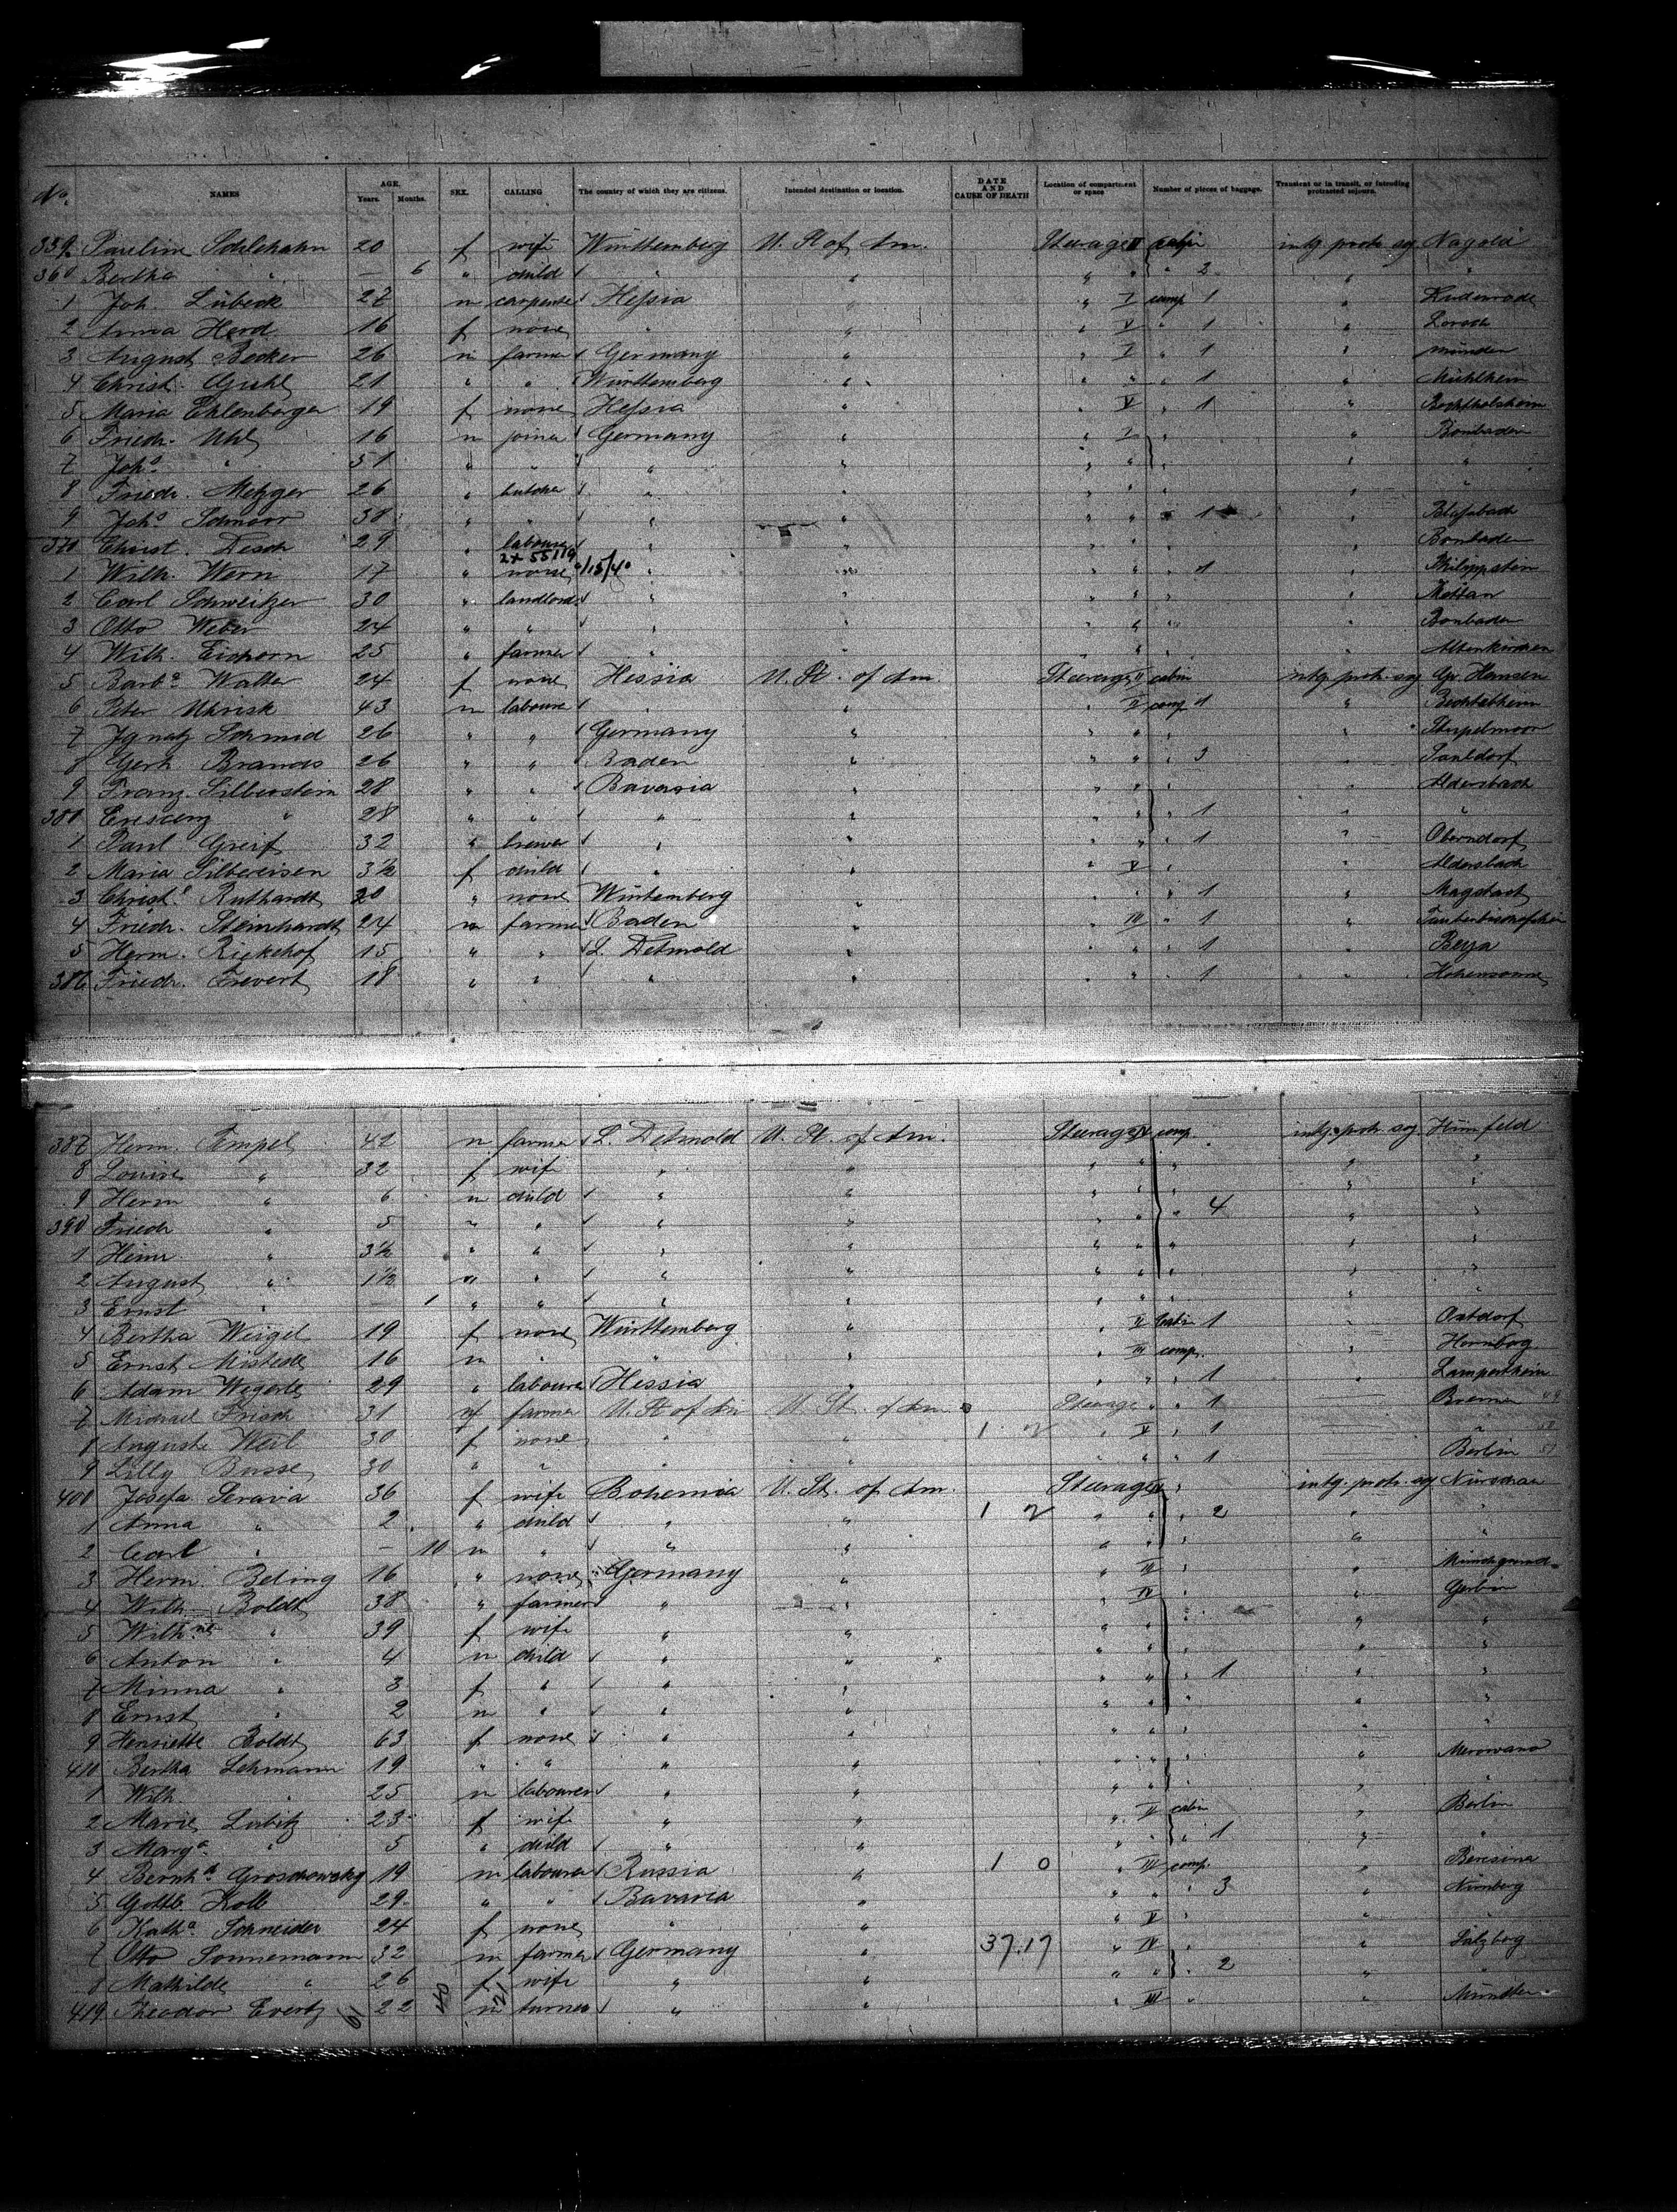 No. NAMES AGE. Years. Months. SEX. CALLING The country of which they are citizens. Intended destination or location. DATE AND CAUSE OF DEATH Location of compartment or space Number of pieces of baggage. Transient or in transit, or intending protracted sojourn.
359 Pauline Schlehahn 20 f wife Württemberg U. St of Am. Steerage II cabin intg protr. soj. Nagold
360 Bertha " — 6 " child " " " " " 2 " "
1 Joh. Lübeck 27 m carpenter Hessia " " I comp 1 "
2 Anna Herd 16 f none " " " V " 1 " Lorsch
3 August Becker 26 m farmer Germany " " I " 1 " Münden
4 Christ. Giehl 21 " " Württemberg " " " " 1 " Mühlheim
5 Maria Ehlenberger 19 f none Hessia " " V " 1 "
6 Friedr. Uhl 16 m joiner Germany " " I " " Bonbaden
7 Johs " 51 " " " " " " " " "
8 Friedr. Metzger 26 " butcher " " " " " " "
9 Johs Schnorr 38 " " " " " " " 1 "
370 Christ. Desch 29 " labourer " " " " " " Bonbaden
2x 55119
1 Wilh. Wern 17 " none 0/15/40 " " " " " 1 " Philippstein
2 Carl Schweitzer 30 " landlord " " " " " "
3 Otto Weber 24 " " " " " " " " Bonbaden
4 Wilh. Eichorn 25 " farmer " " " " " " Altenkirchen
5 Barba Walter 24 f none Hessia U. St. of Am. Steerage II cabin intg protr. soj Gr. Hansen
6 Peter Uhrisk 43 m labourer " " V comp 1 " Bechtolsheim
7 Ignatz Schmid 26 " " Germany " " " " "
8 Gerh Brands 26 " " Baden " " " " 3 "
9 Franz. Silberstein 28 " " Bavaria " " " " " Aldersbach
380 Crescenz " 28 " " " " " " " 1 " "
1 Paul Greif 32 " brewer " " " " " 1 " Oberndorf
2 Maria Silbereisen 3½ f child " " " V " " Aldersbach
3 Christe Ruthardt 20 " none Würtemberg " " " " 1 " Magstadt
4 Friedr. Steinhardt 24 m farmer Baden " " III " 1 "
5 Herm. Riekehof 15 " " L. Detmold " " " " 1 " Bega
386 Friedr. Frevert 18 " " " " " " " 1 "
387 Herm. Tempel 42 m farmer L. Detmold U. St. of Am. Steerage IV comp. intg. protr. soj
8 Louise " 32 f wife " " " " " " "
9 Herm " 6 m child " " " " " 4 " "
390 Friedr " 5 " " " " " " " " "
1 Heinr. " 3½ " " " " " " " " "
2 August " 1½ m " " " " " " " "
3 Ernst " — 1 " " " " " " " " "
4 Bertha Weigel 19 f none Württemberg " " II Cabin 1 " Ostdorf
5 Ernst Mistede 16 m " " " " III comp. "
6 Adam Wegerle 29 " labourer Hessia " " " " 1 " Lampertheim
7 Michael Frisch 31 m farmer U. St of Am U. St. of Am. Steerage " " 1 — Bremen
8 Auguste Weil 30 f none " " 1 2 " V " 1 — "
9 Lilly Busse 30 " " " " " " " 1 — Berlin 51
400 Josefa Seravia 36 f wife Bohemia U. St. of Am. Steerage " intg. protr. soj Nürschan
1 Anna " 2 " child " " 1 2 " " " 2 " "
2 Carl " — 10 m " " " " " " " "
3 Herm. Beling 16 " none Germany " " III " "
4 Wilh Boldt 38 " farmer " " " IV " " Gerbin
5 Wilhne " 39 f wife " " " " " " "
6 Anton " 4 m child " " " " " " "
7 Minna " 3 f " " " " " " 1 " "
8 Ernst " 2 m " " " " " " " "
9 Henriette Boldt 63 f none " " " " " " "
410 Bertha Lehmann 19 " " " " " " " "
1 Wilh. " 25 m labourer " " " " " " "
2 Marie Lubitz 23 f wife " " " II cabin " Berlin
3 Marga " 5 " child " " " " " 1 " "
4 Bernhd Groschowsky 19 m labourer Russia " 1 0 " IV comp. " Beresina
5 Gottl. Kolb 29 " " Bavaria " " " " 3 " Nürnberg
6 Katha Schneider 24 f none " " " V " " "
7 Otto Sonnemann 32 m farmer Germany " 37.17 " IV " " Salzbog
8 Mathilde " 26 f wife " " " " " 2 " "
419 Theodor Evertz 22 m turner " " " III " " Münster